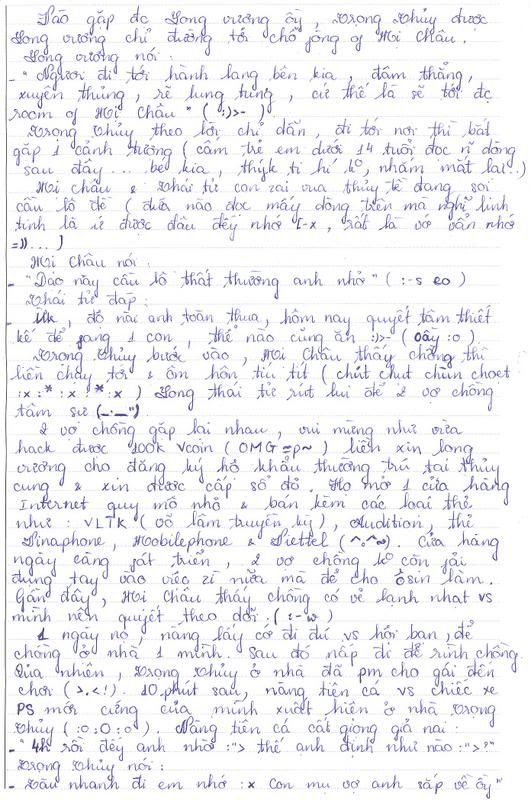 Sao gặp đc Long vương òy, Trọng Thủy được
Long vương chỉ đường tới chỗ jống of Mị Châu.
Long vương nói:
- "Ngươi đi tới hành lang bên kia, đâm thẳng,
xuyên thủng, rẽ lung tung, cứ thế là sẽ tới đc
room of Mị Châu" ( ;)>- )
Trọng Thủy theo lời chỉ dẫn, đi tới nơi thì bắt
gặp 1 cảnh tượng ( cấm trẻ em dưới 14 tuổi đọc n dòng
sau đây... bé kia, thýk ti hí k°, nhắm mắt lại..)
Mị Châu & thái tử con zai vua thủy tề đang soi
cầu lô đề ( đứa nào đọc mấy dòng trên mà nghĩ linh
tinh là ứ được đâu đếy nhớ [-x , rất là vớ vẩn nhớ
=))... )
Mị Châu nói:
- "Dạo này cầu lô thất thường anh nhờ" ( :-s eo )
Thái tử đáp:
- Uk, độ nài anh toàn thua, hôm nay quyết tâm thiết
kế để jang 1 con, thể nào cũng ăn :)>- ( Oầy :o )
Trọng Thủy bước vào, Mị Châu thấy chồng thì
liền chạy tới & ôm hôn tíu tít ( chút chụt chùn choẹt
:x :* :x :* :x ) Long thái tử rút lui để 2 vợ chồng
tâm sự (_._").
2 vợ chồng gặp lại nhau, vui mừng như vừa
hack được 100k Vcoin ( OMG =p~ ) liền xin long
vương cho đăng ký hộ khẩu thường trú tại thủy
cung & xin được cấp sổ đỏ. Họ mở 1 cửa hàng
Internet quy mô nhỏ & bán kèm các loại thẻ
như : VLTK ( võ lâm truyền kỳ ), Audition, thẻ
Vinaphone, Mobilephone & Viettel ( ^.^~ ). Cửa hàng
ngày càng fát triển, 2 vợ chồng k° còn fải
dụng tay vào việc zì nữa mà để cho ôsin làm.
Gần đây, Mị Châu thấy chồng có vẻ lạnh nhạt vs
mình nên quyết theo dõi. ( :-w )
1 ngày nọ, nàng lấy cớ đi dú vs hội bạn, để
chồng ở nhà 1 mình. Sau đó nấp đi để rình chồng.
Quả nhiên, Trọng Thủy ở nhà đã pm cho gái đến
chơi ( >.<! ). 10 phút sau, nàng tiên cá vs chiếc xe
PS mới cứng của mình xuất hiện ở nhà Trọng
Thủy ( :o :O :o ). Nàng tiên cá cất giọng giả nai :
- "4h rồi đếy anh nhờ :"> thế anh định như nào :">?"
Trọng Thủy nói :
- Vào nhanh đi em nhớ :x Con mụ vợ anh sắp về òy"